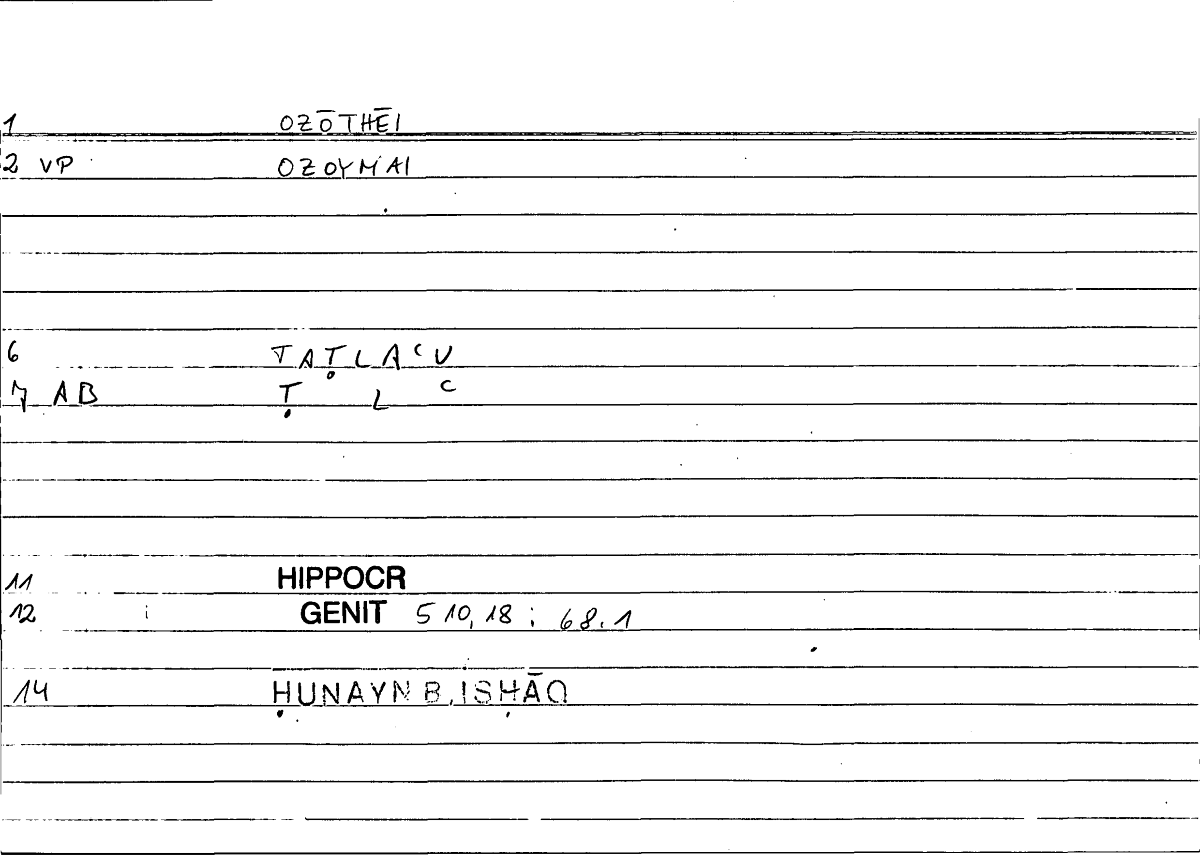 1 OZŌTHĒI
2 VP OZOYMAI
6 TAṬLAʿU
7 AB Ṭ L ʿ
11 HIPPOCR
12 GENIT 5 10,18 ; 68.1
14 ḤUNAYN B. ISḤĀQ